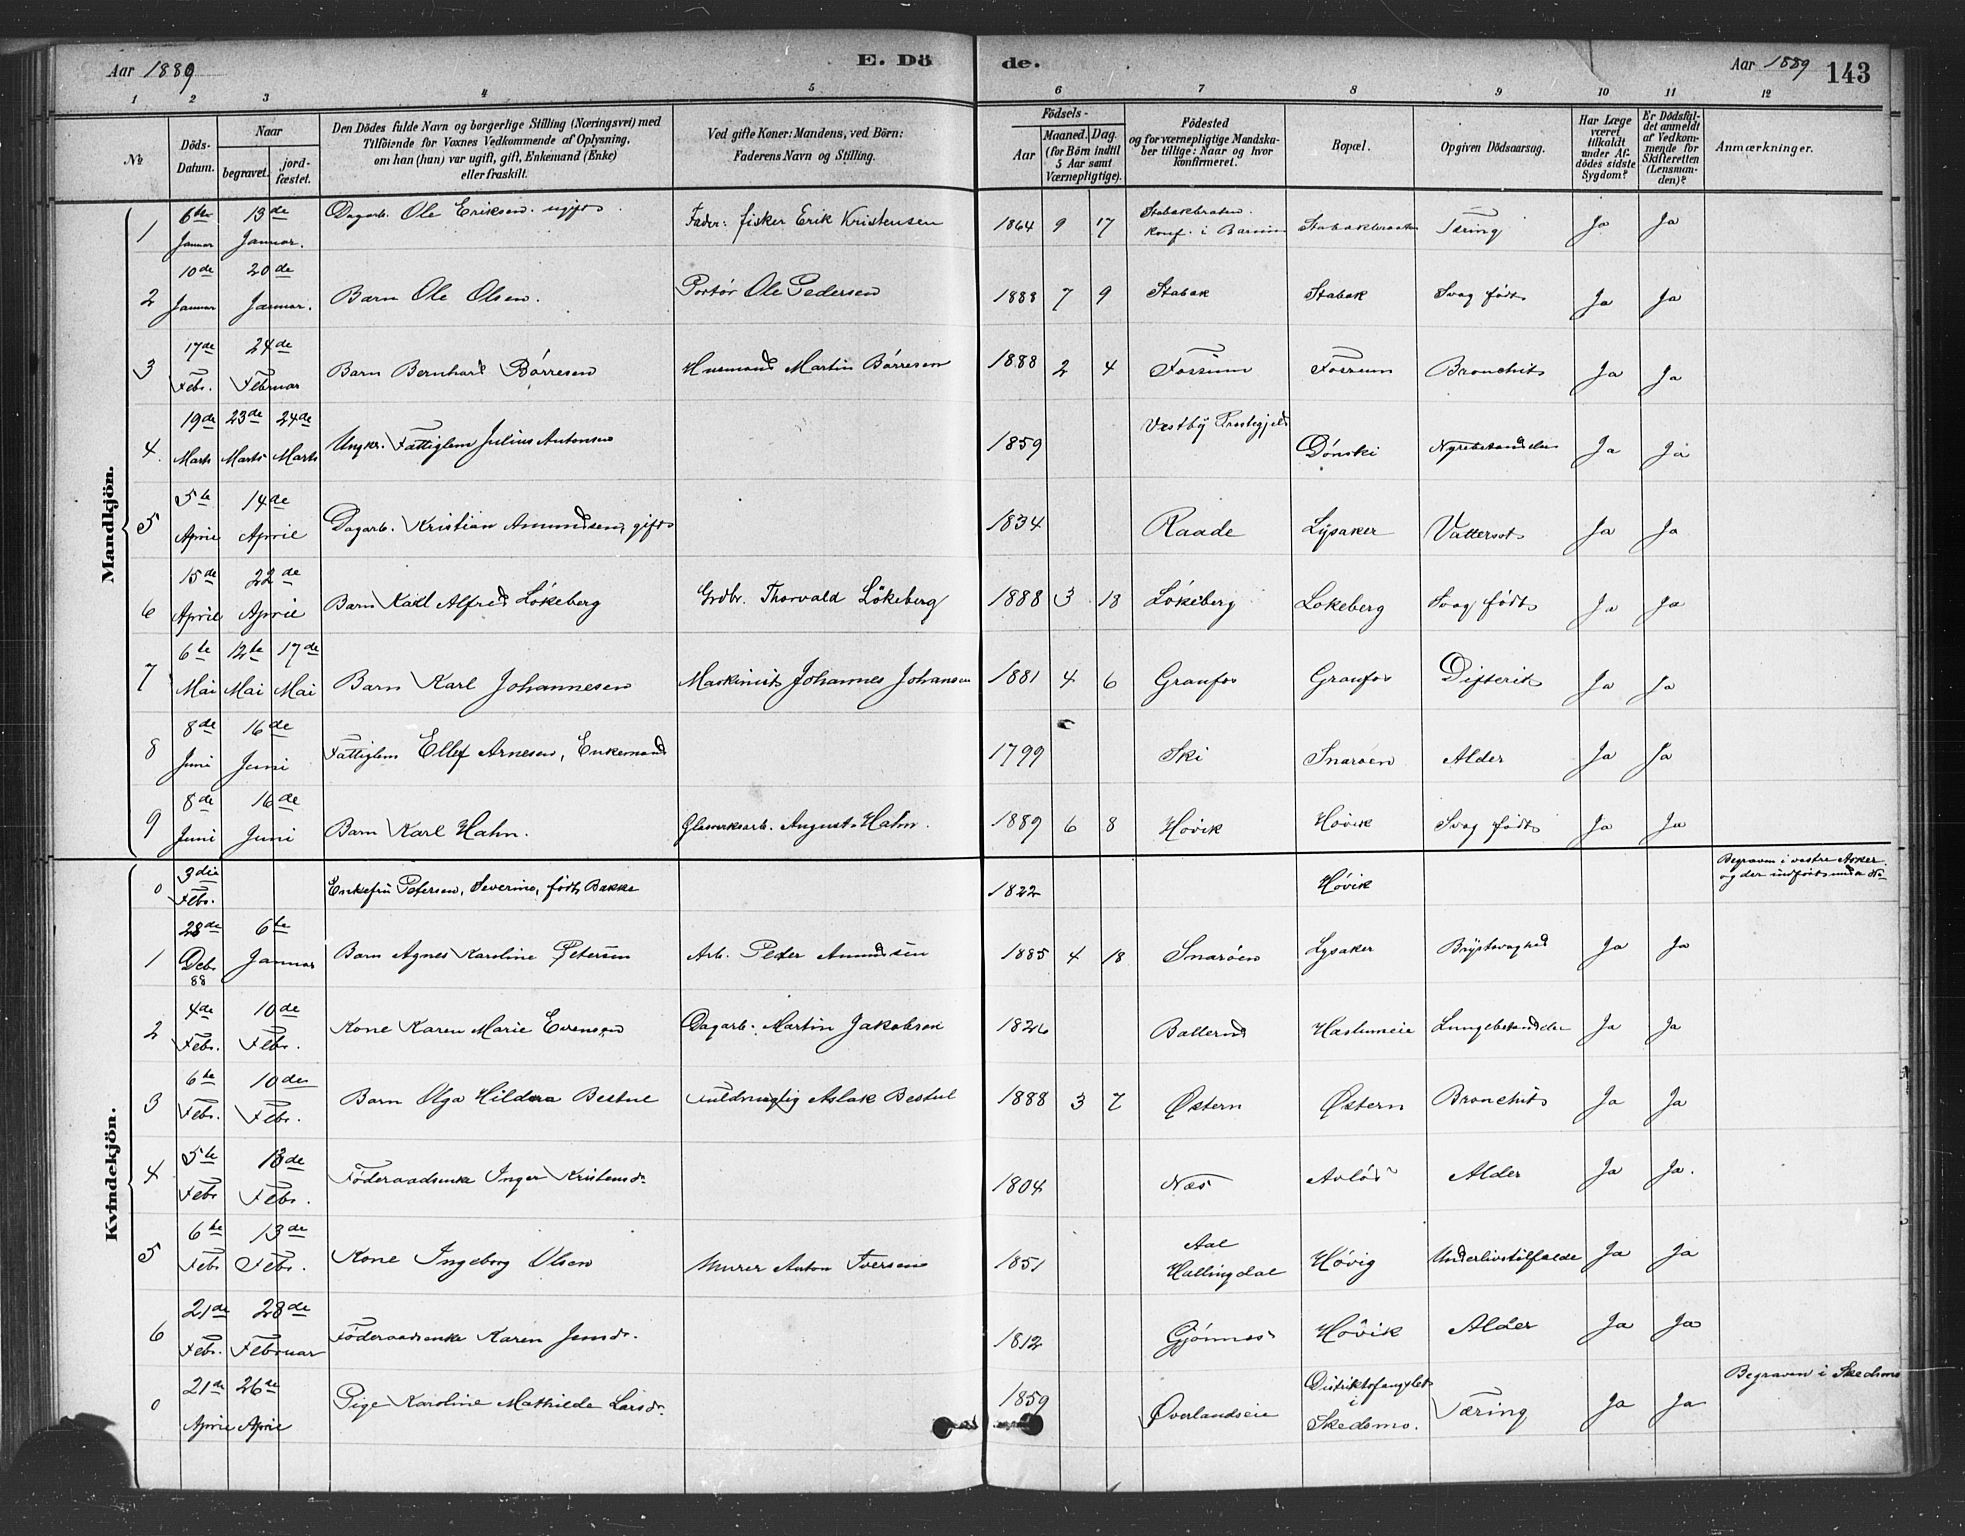 Aar 1889
E. Dö
de.
Aar 1889
143
1 2 3 4 5 6 7 8 9 10 11 12
No
Döds-Datum.
Naar
begravet.
jord-fæstet.
Den Dödes fulde Navn og borgerlige Stilling (Næringsvei) med
Tilföiende for Voxnes Vedkommende af Oplysning,
om han (hun) var ugift, gift, Enkemand (Enke)
eller fraskilt.
Ved gifte Koner: Mandens, ved Börn:
Faderens Navn og Stilling.
Födsels-
Aar
Maaned. Dag.
(for Börn indtil
5 Aar samt
Værnepligtige).
Födested
og for værnepligtige Mandska-
ber tillige: Naar og hvor
konfirmeret.
Bopæl.
Opgiven Dödsaarsag.
Har Læge
været
tilkaldt
under Af-
dödes sidste
Sygdom?
Er Dödsfal-
det anmeldt
af Vedkom-
mende for
Skifteretten
(Lensman-
den)?
Anmærkninger.
Mandkjön.
1 6te Januar 13de Januar. Dagarb. Ole Eriksen. ugift. Fader: fisker Erik Kristensen 1864 9 17 Stabækbraaten. konf. i Bærum Stabækbraaten Tæring Ja Ja
2 10de Januar 20de Januar. Barn Ole Olsen. Portör Ole Pedersen 1888 7 9 Stabæk Stabæk Svag födt Ja Ja
3 17de Febr. 24de Februar Barn Bernhard Börresen Husmand Martin Börresen 1888 2 4 Fossum Fossum Bronchit Ja Ja
4. 19de Marts 23de Marts 24de Marts Ungkr. Fattiglem Julius Antonsen 1859 Vestby Prestegjeld Dönski Nyrebetændelse Ja Ja
5 5te April 14de April Dagarb. Kristian Amundsen, gift 1834 Raade Lysaker Vattersot Ja Ja
6 15de April 22de April Barn Karl Alfred Lökeberg Grdbr. Thorvald Lökeberg 1888 3 18 Lökeberg Lökeberg Svag födt Ja Ja
7 6te Mai 12te Mai 17de Mai Barn Karl Johannesen Maskinist Johannes Johansen 1881 4 6 Granfos Granfos Difterit Ja Ja
8 8de Juni 16de Juni Fattiglem Ellef Arnesen, Enkemand 1799 Ski Snaröen Alder Ja Ja
9 8de Juni 16de Juni Barn Karl Hahn. Glasverksarb. August Hahn. 1889 6 8 Hövik Hövik Svag födt Ja Ja
Kvindekjön.
0 3die Febr. Enkefru Petersen, Severine, födt Bakke 1822 Hövik Begraven i vestre Aker og der indfört under No
1 28de Debr 88 6te Januar Barn Agnes Karoline Petersen Arb. Peder Amundsen 1885 4 18 Snaröen Lysaker Brystsvaghed Ja Ja
2 4de Febr. 10de Febr. Kone Karen Marie Evensen Dagarb. Martin Jakobsen 1826 Ballerud Haslumeie Lungebetændelse Ja Ja
3 6te Febr. 10de Febr. Barn Olga Hildora Bestul Fuldmægtig Aslak Bestul 1888 3 7 Østern Østern Bronchit Ja Ja
4 5te Febr 13de Febr. Föderaadsenke Inger Kristensdr. 1804 Næs Avlös Alder Ja Ja.
5 6te Febr 13de Febr. Kone Ingeborg Olsen Murer Anton Iversen 1851 Aal Hallingdal Hövig Underlivstilfælde Ja Ja
6 21de Febr. 28de Februar Föderaadsenke Karen Jensdr. 1812 Gjönnes Hövik Alder Ja Ja
0 21de April 26de April Pige Karoline Mathilde Larsdr. 1859 Øverlandseie Distriktsfængslet i Skedsmo. Tæring Ja Ja Begraven i Skedsmo